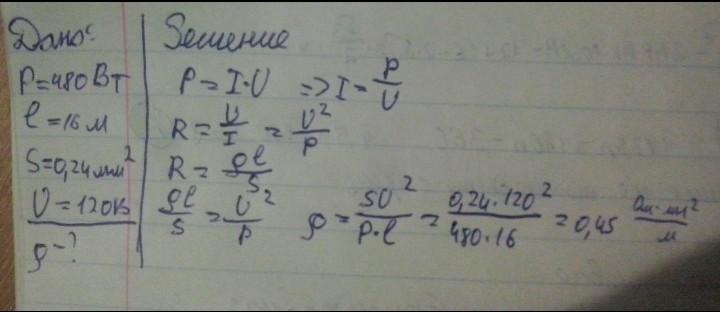 Дано:
P=480Вт
l=16м
S=0,24мм²
U=120В
ρ-?
Решение
P=I·U => I=P/U
R=U/I=U²/P
R=ρl/S
ρl/S=U²/P ρ=SU²/P·l=0,24·120²/480·16=0,45 Ом·мм²/м